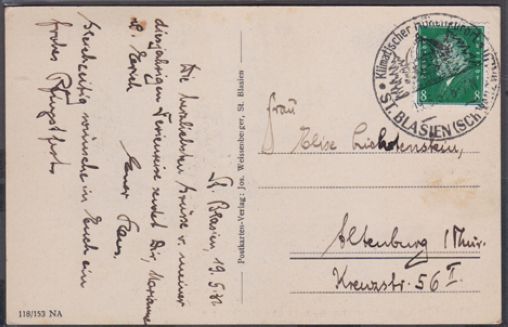 St. Blasien, 19.5.32
Die herzlichsten Grüsse v. meiner
diesjährigen Ferienreise sendet Dir, Marianne
u. Erich
Euer Hans.
Gleichzeitig wünsche ich Euch ein
frohes Pfingstfest.
118/153 NA
Postkarten-Verlag: Jos. Weissenberger, St. Blasien
Klimatischer Höhenkurort
ST. BLASIEN (SCH
8 8
Frau
Elise Lichtenstein,
Altenburg / Thür.
Kreuzstr. 56 I